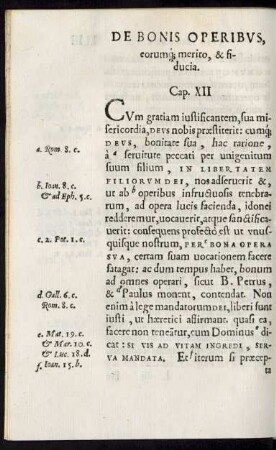 DE BONIS OPERIBVS,
eorumq́; merito, & fi-
ducia.
Cap. XII
CVm gratiam iustificantem, sua mi-
sericordia, DEVS nobis præstiterit: cumq́;
DEVS, bonitate sua, hac ratione,
a. Rom. 8. c.
à ᵃ seruitute peccati per vnigenitum
suum filium, IN LIBERTATEM
b. Ioan. 8. c.
FILIORVM DEI, nos adseruerit &,
& ad Eph. 5. c.
vt ab ᵇ operibus infructuosis tenebra-
rum, ad opera lucis facienda, idonei
redderemur, uocauerit, atque sanctifica-
uerit: consequens profecto est ut vnus-
c. 2. Pet. 1. c.
quisque nostrum, PER ᶜ BONA OPERA
SVA, certam suam uocationem facere
satagat: ac dum tempus habet, bonum
ad omnes operari, sicut B. Petrus,
d. Gall. 6. c.
& ᵈ Paulus monent, contendat. Non
Rom. 8. c.
enim à lege mandatorum DEI, liberi sunt
iusti, ut hæretici astirmant. quasi ea,
e. Mar. 19. c.
facere non teneātur, cum Dominus ᵉ di-
& Mar. 10. c.
cat: SI VIS AD VITAM INGREDI, SER-
& Luc. 18. d.
VA MANDATA. Et ᶠ iterum si præcep-
f. Ioan. 15. b.
ta